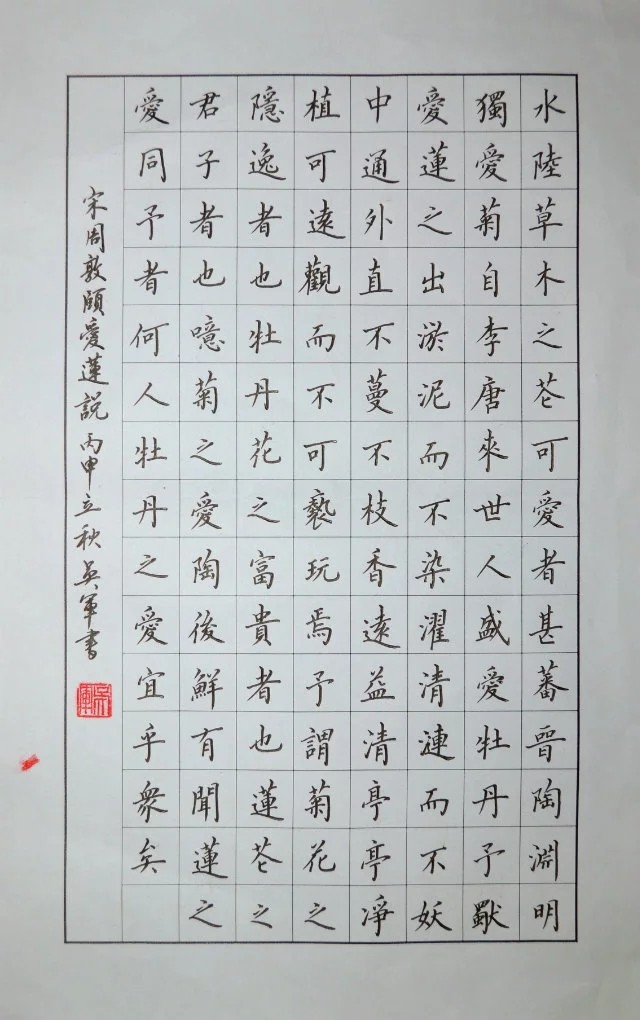 水陸草木之芲可愛者甚蕃晉陶淵明
獨愛菊自李唐來世人盛愛牡丹予獨
愛蓮之出淤泥而不染濯清漣而不妖
中通外直不蔓不枝香遠益清亭亭淨
植可遠觀而不可褻玩焉予謂菊花之
隱逸者也牡丹花之富貴者也蓮芲之
君子者也噫菊之愛陶後鮮有聞蓮之
愛同予者何人牡丹之愛宜乎衆矣
宋周敦頤愛蓮説丙申立秋吳軍書
吳軍